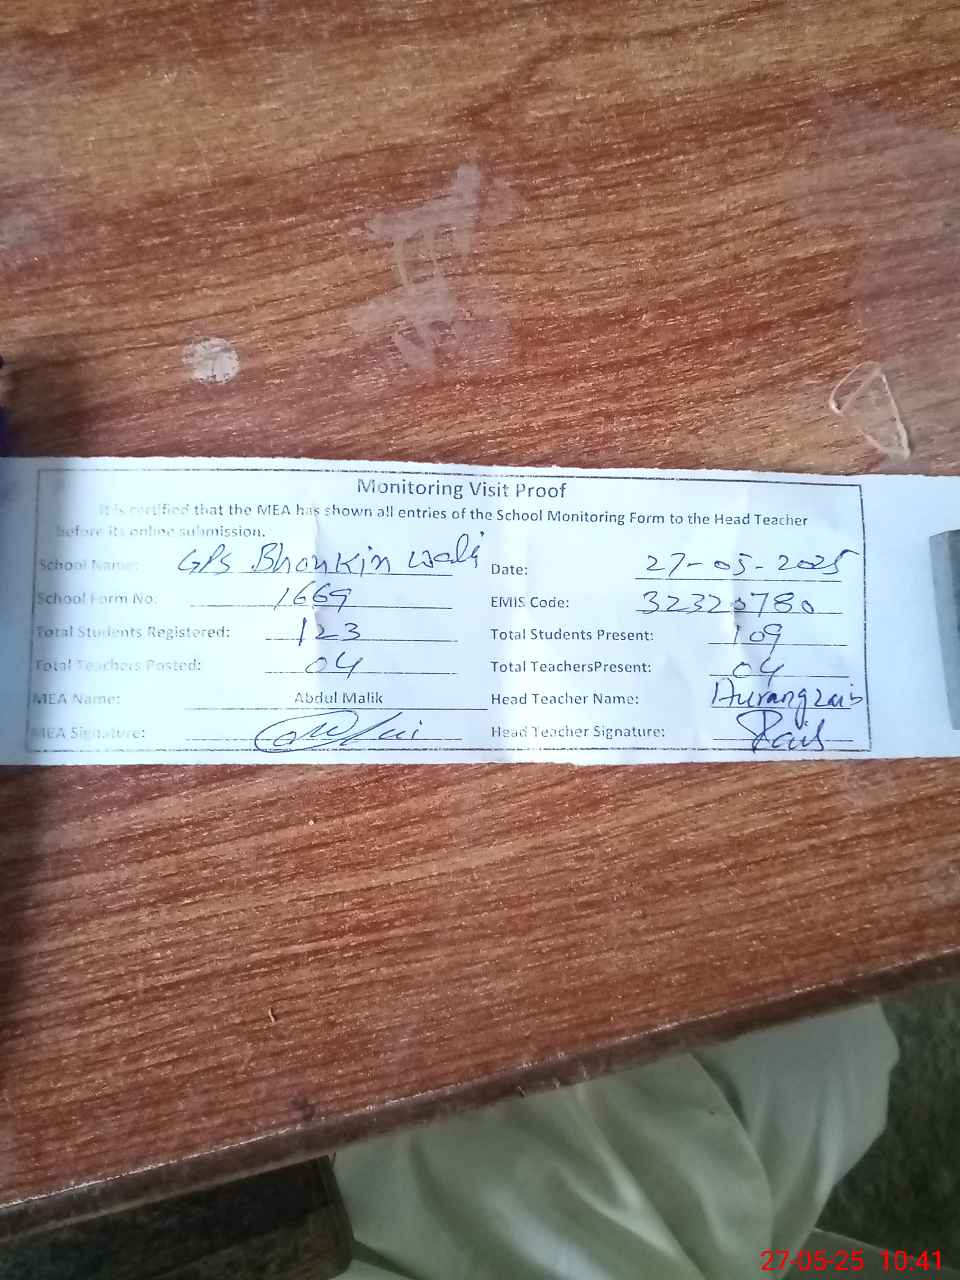 Monitoring Visit Proof
It is certified that the MEA has shown all entries of the School Monitoring Form to the Head Teacher
before its online submission.
School Name: GPS Bhankin wali Date: 27-05-2025
School Form No: 1669 EMIS Code: 32320780
Total Students Registered: 123 Total Students Present: 109
Total Teachers Posted: 04 Total TeachersPresent: 04
MEA Name: Abdul Malik Head Teacher Name: Aurangzaib
MEA Signature: Head Teacher Signature:
27-05-25 10:41